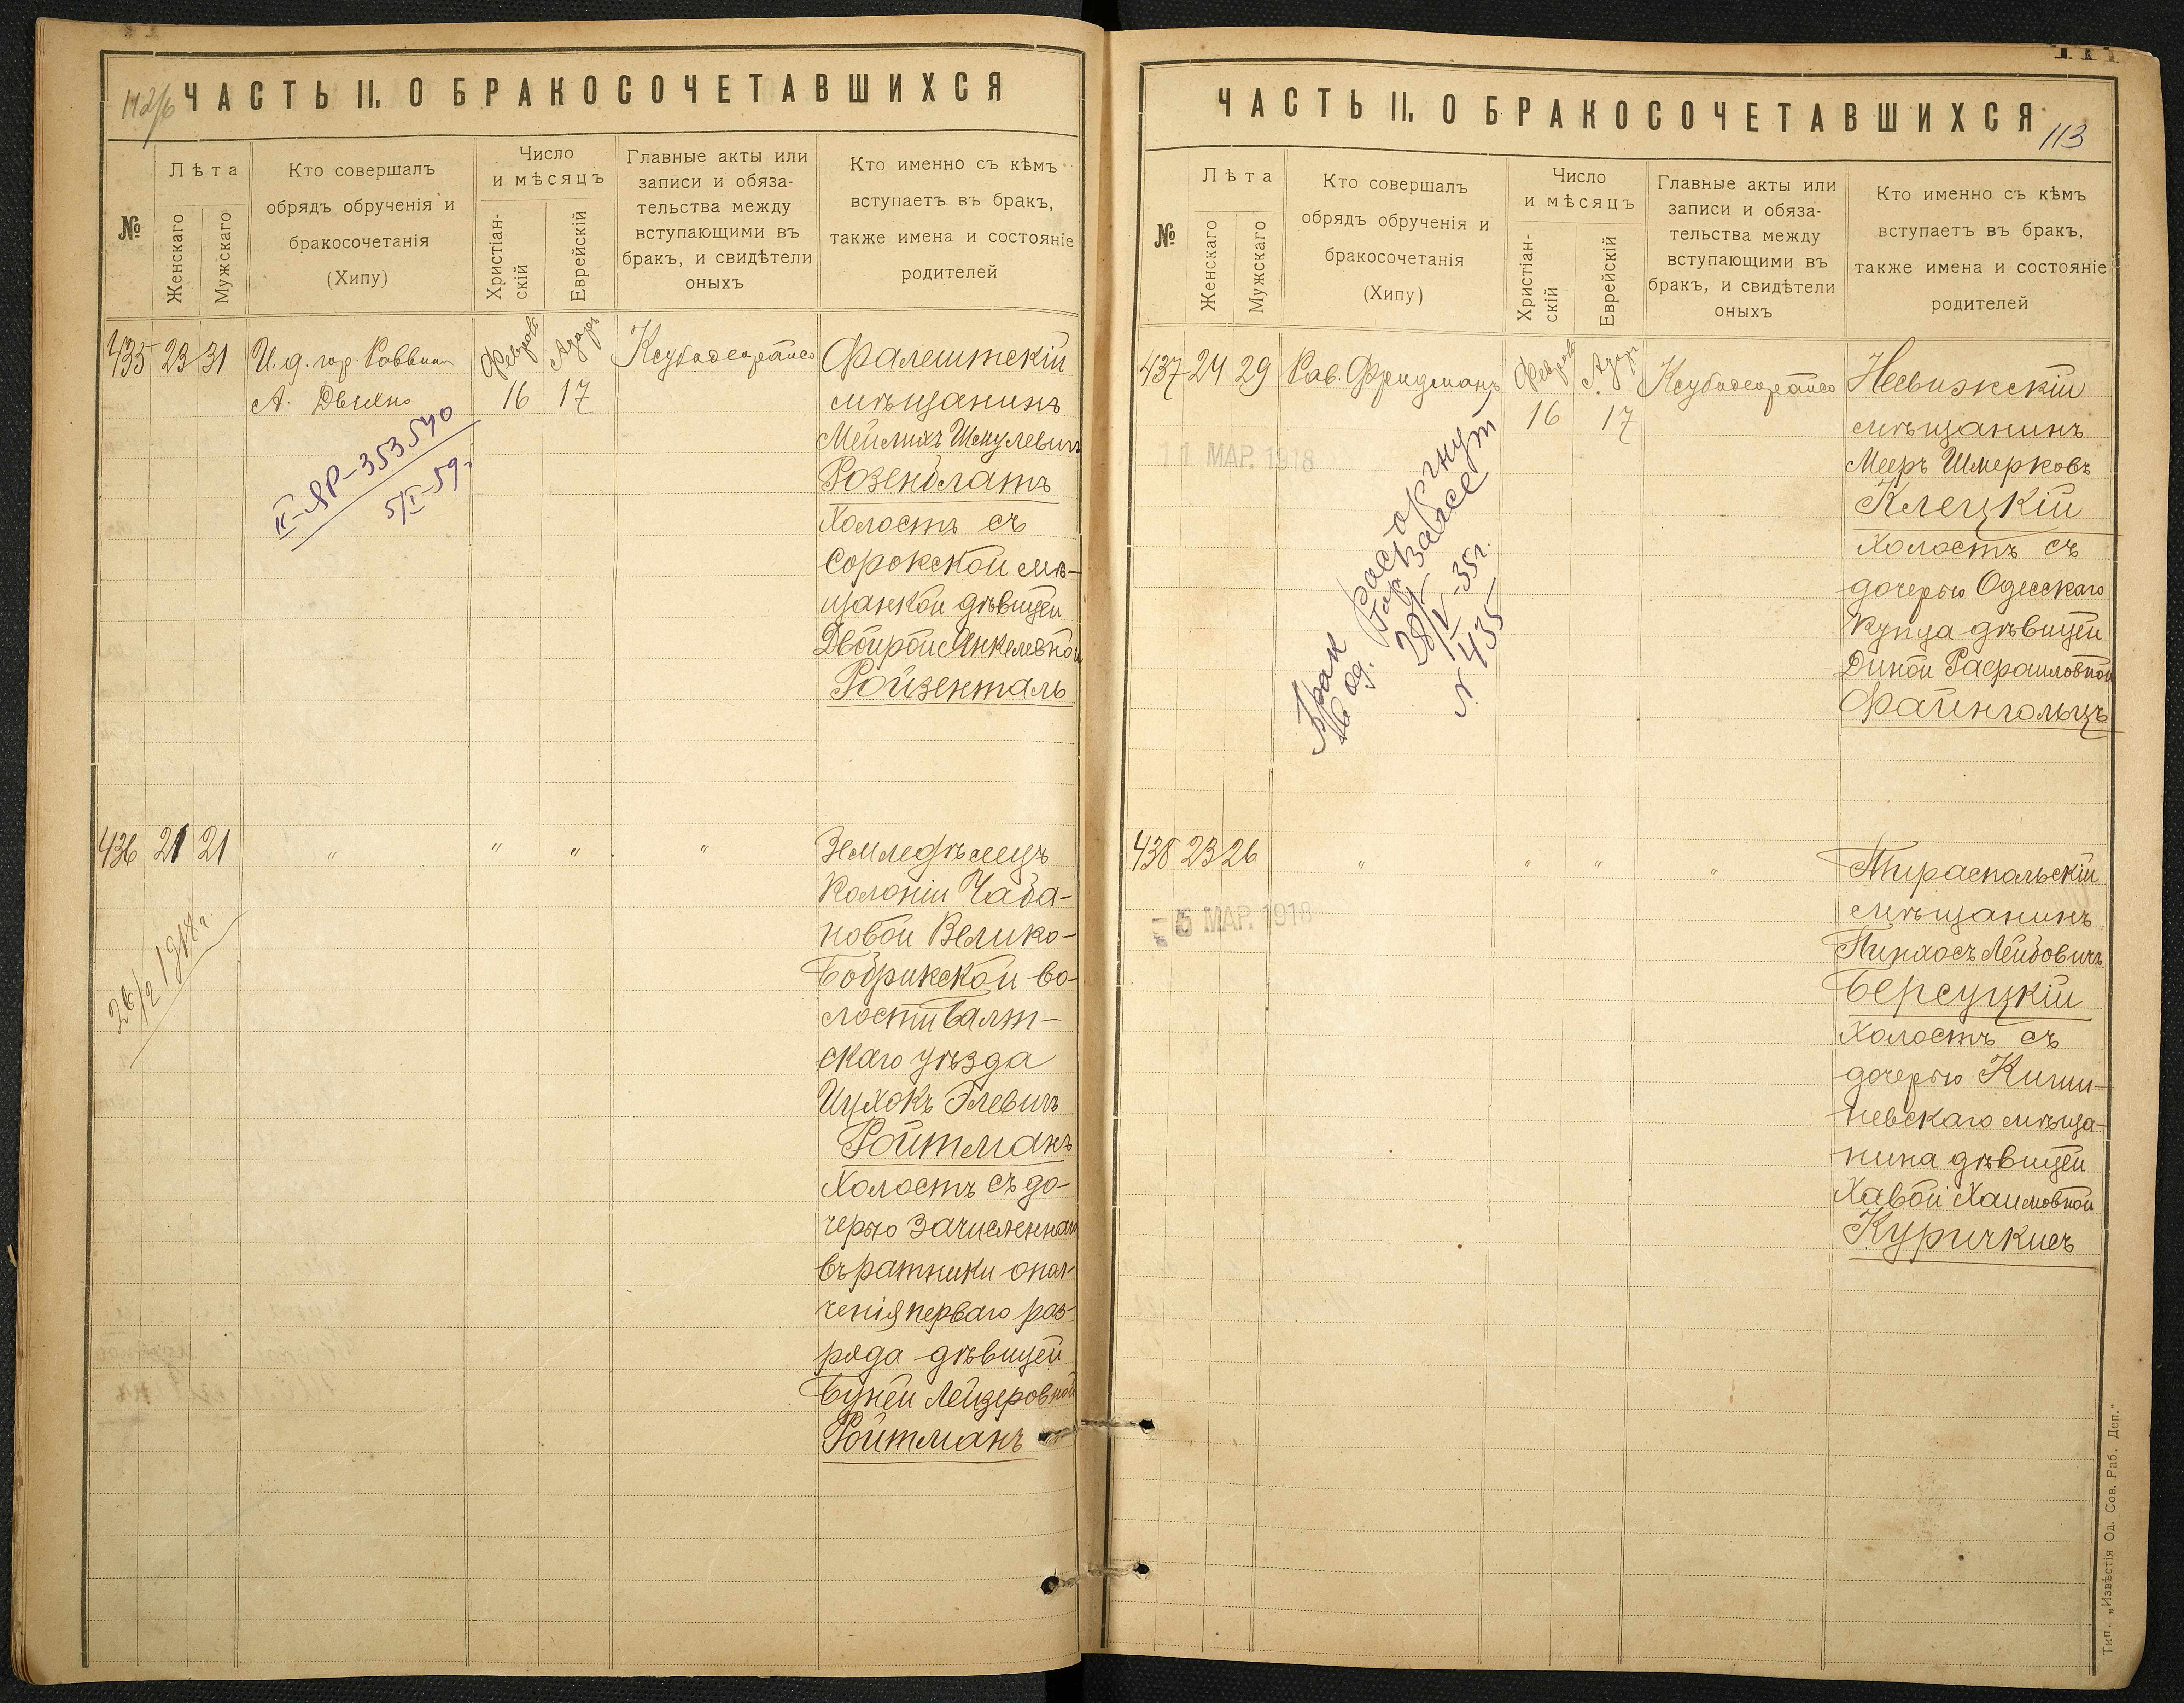 112/б
ЧАСТЬ II. О БРАКОСОЧЕТАВШИХСЯ
№
Лѣта
Женскаго
Мужскаго
Кто совершалъ
обрядъ обрученія и
бракосочетанія
(Хипу)
Число
и мѣсяцъ
Христіан-
скій
Еврейскій
Главные акты или
записи и обяза-
тельства между
вступающими въ
бракъ, и свидѣтели
оныхъ
Кто именно съ кѣмъ
вступаетъ въ бракъ,
также имена и состояніе
родителей
435 23 31
И. д. гор. Раввина
А. Двилко
16 17
Фалештскій
мѣщанинъ
Мейлихъ Шмулевичъ
Розенблатъ
холостъ съ
Сорокской мѣ-
щанкой дѣвицей
Двойрой Янкелевной
Ройзенталь
II-ЯР-353540
5/I-59г.
436 21 21
" " " "
Земледѣлецъ
колоніи Чаба-
новой Велико-
Бобрикской во-
лости Балт-
скаго уѣзда
Ицхокъ Элевичъ
Ройтманъ
холостъ съ до-
черью зачисленнаго
въ ратники опол-
ченія перваго раз-
ряда дѣвицей
Буней Лейзеровной
Ройтманъ
26/2 1918 г.
ЧАСТЬ II. О БРАКОСОЧЕТАВШИХСЯ
113
№
Лѣта
Женскаго
Мужскаго
Кто совершалъ
обрядъ обрученія и
бракосочетанія
(Хипу)
Число
и мѣсяцъ
Христіан-
скій
Еврейскій
Главные акты или
записи и обяза-
тельства между
вступающими въ
бракъ, и свидѣтели
оныхъ
Кто именно съ кѣмъ
вступаетъ въ бракъ,
также имена и состояніе
родителей
437 24 29
Рав. Фридманъ
16 17
Несвижскій
мѣщанинъ
Мееръ Шмерковъ
Клецкій
холостъ съ
дочерью Одесскаго
купца дѣвицей
Диной Расраиловной
Файнгольцъ
11 МАР. 1918
Брак расторгнут
28/V-35г.
N 435
438 23 26
" " " "
Тираспольскій
мѣщанинъ
Пинхосъ Лейбовичъ
Берсуцкій
холостъ съ
дочерью Киши-
невскаго мѣща-
нина дѣвицей
Хавой Хаимовной
Куричкисъ
5 МАР. 1918
Тип. „Извѣстія Од. Сов. Раб. Деп."